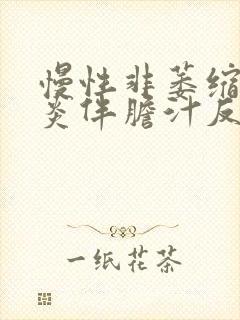 慢性非萎缩
炎伴胆汁反
一纸花茶